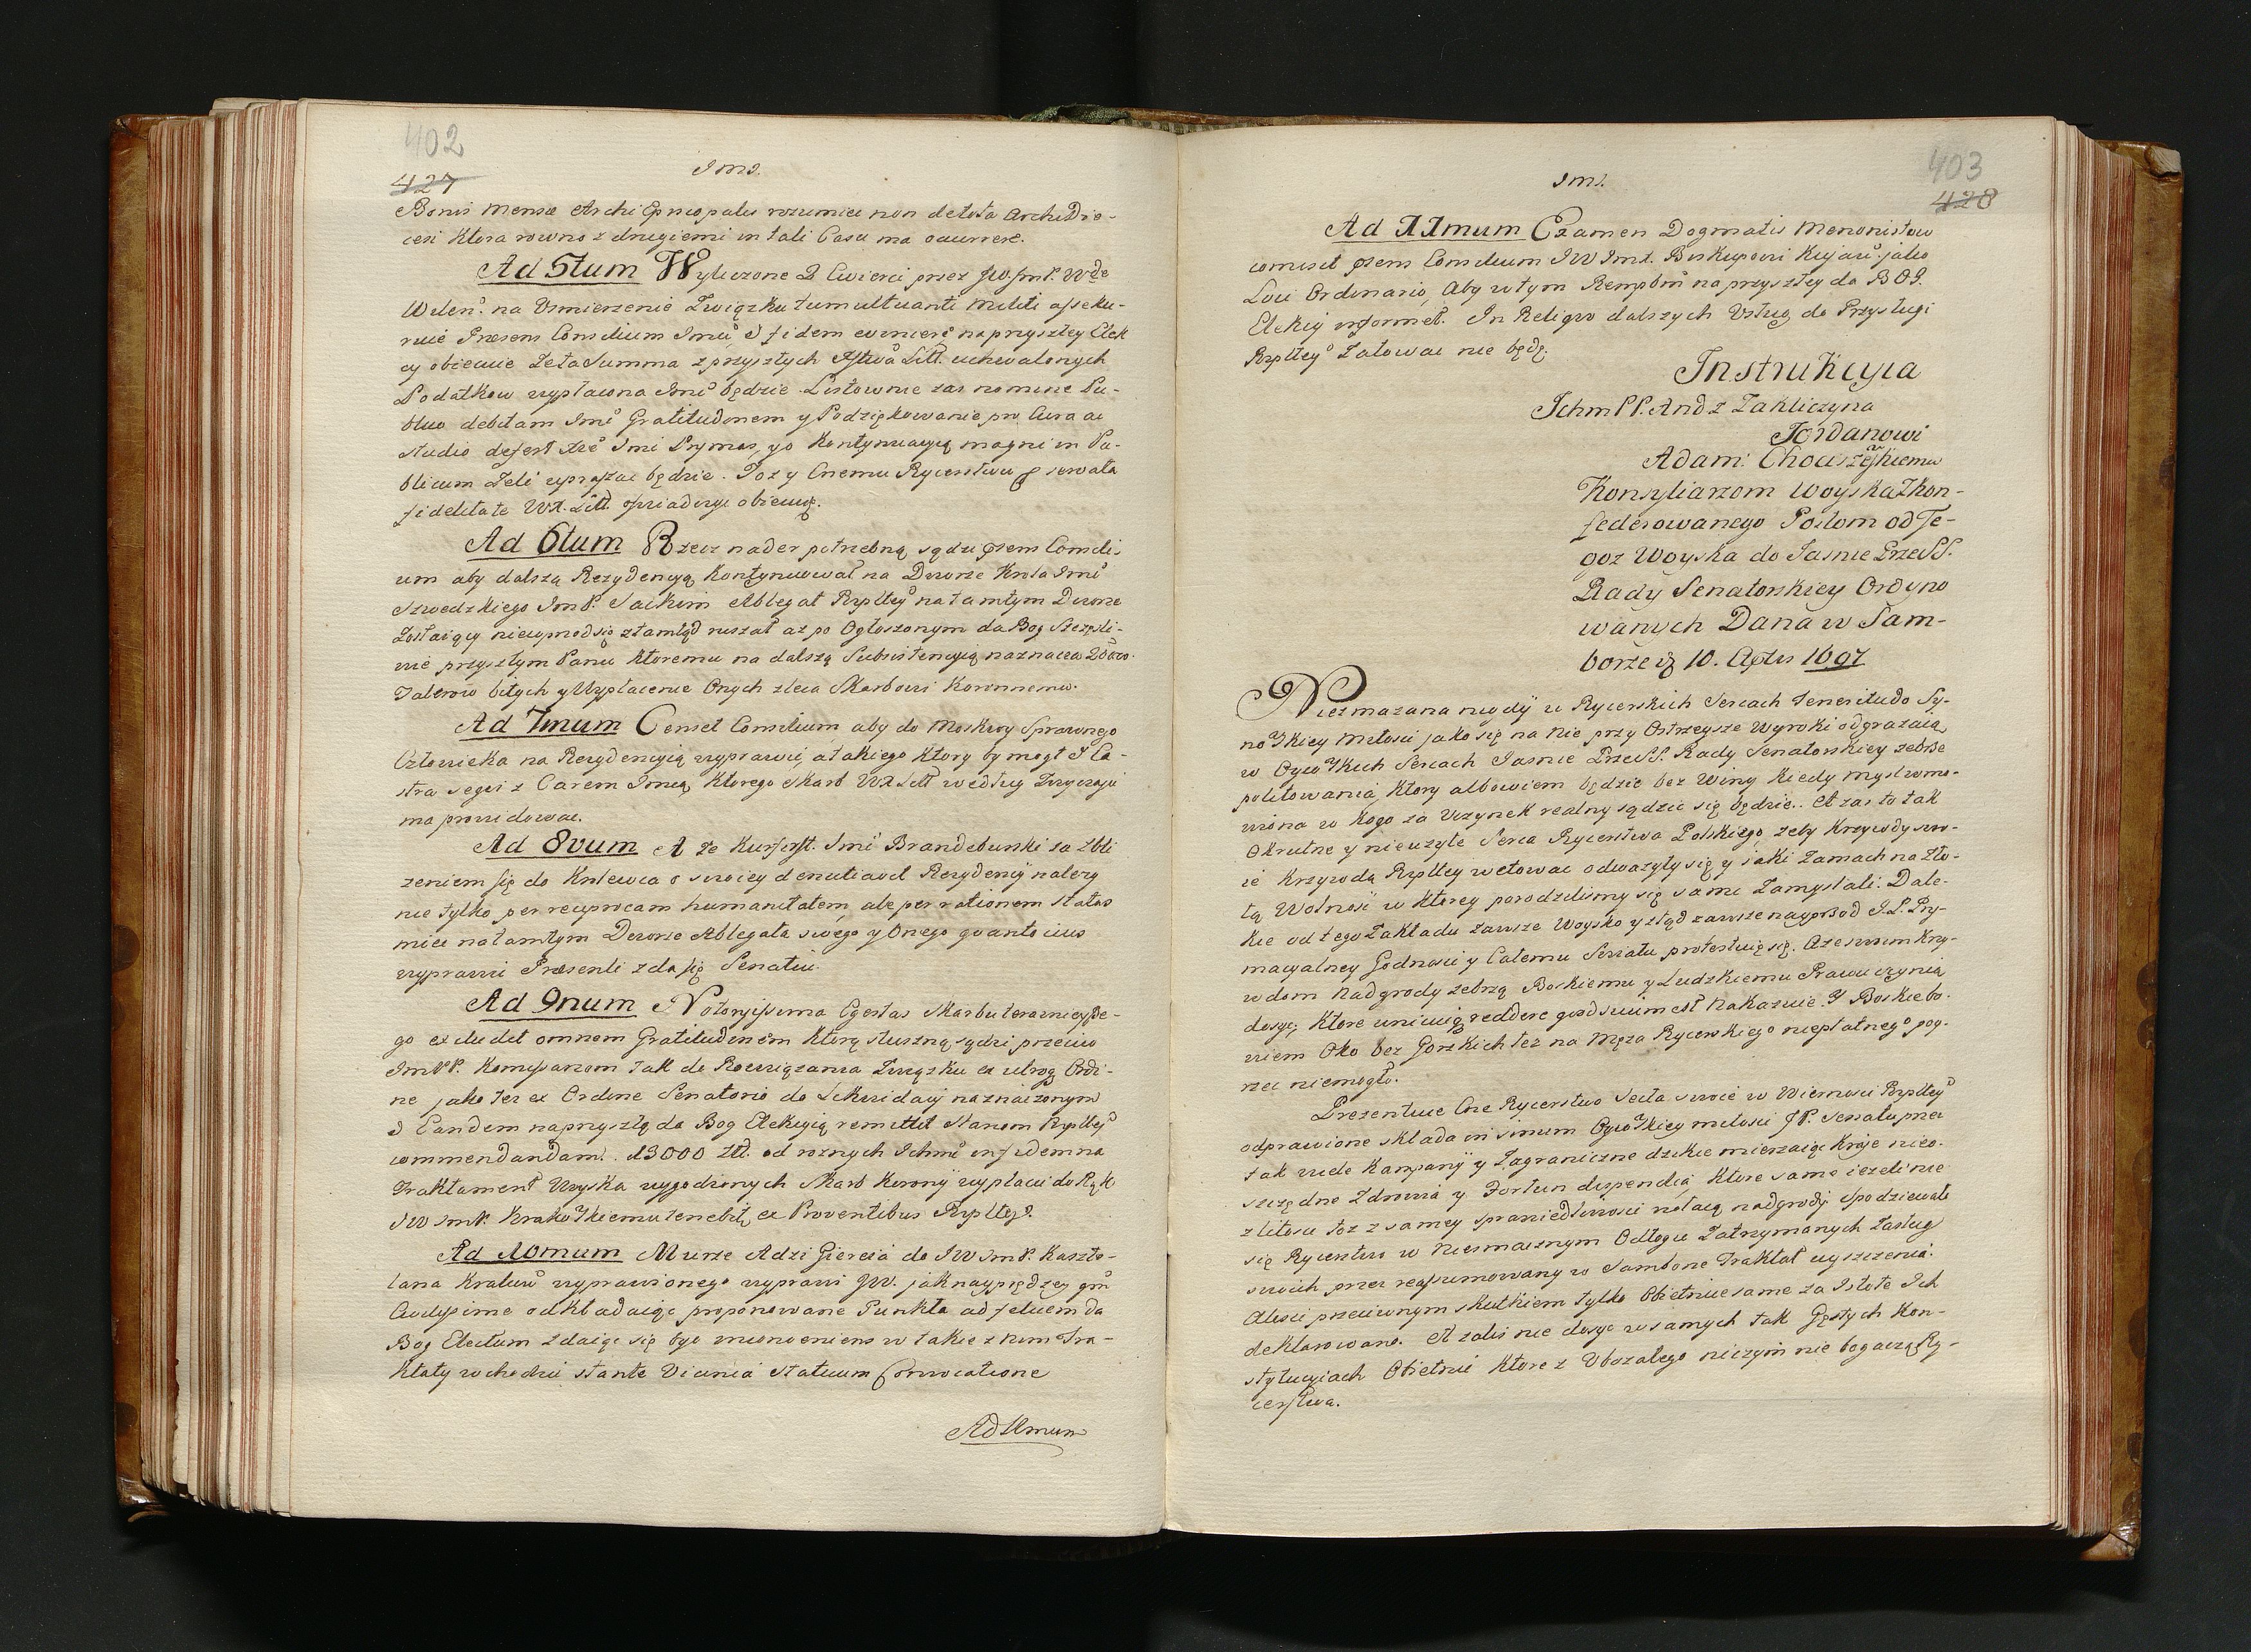 402
427
Jmś.
Bonis Mensæ Archi Episcopalis rozumiee non detota Archidie-
cesi Ktora rowno z drugiemi in tali Casu ma ocurrere.
Ad 5tum Wyliczone 2 Cwierci przez JW. Jm P. Wde
Wilen. na Usmierzenie Związku tumultuanti militi asseku-
ruie Præsens Consilium Jmci, fidem na przyszłey Elek
cy obiecuie Zeta Summa z przyszłych Litt. uchwalonych
Podatkow wypłacona Jmci będzie. Listownie zas nomine Pu-
blico debitam Jmci Gratitudinem y Podziękowanie pro Cura ac
studio defert Jmci Prymas, y o Kontynuacyą magni in Pu-
blicum Zeli upraszac będzie. Toz y Onemu Rycerstwu servata
fidelitate WX. Litt. obiecuię.
Ad 6tum Rzecz nader potrzebną sądzi præsens Consili-
um aby dalszą Rezydencyą Kontynuował na Dworze Krola Jmci
Szwedzkiego Jm P. Ablegat Rzpltey na tamtym Dworze
Zostaiący nieuprzod się ztamtąd ruszał az po Ogłoszonym da Bog Szczęsli-
wie przyszłym Panu Ktoremu na dalszą Subsistencyą naznacza
Talerow bitych y Wypłacenie Onych zleca Skarbowi Koronnemu.
Ad 7mum Censet Consilium aby do Moskwy Sprawnego
Człowieka na Rezydencyią wyprawic, a takiego Ktory by mogł Ca-
stra segui z Carem Jmcią, Ktorego Skarb WX Litt według Zwyczaju
ma prowidowac.
Ad 8vum A ze Kurfirszt. Jmci Brandeburski za zbli
zeniem się do Krolewca o swoiey denutiavel Rezydencÿ nalezy
nie tylko per reciprocam humanitatem, ale per rationem status
miec na tamtym Dworze Ablegata swego y Onego quantocius
wyprawic Præsenti zda się Senatui.
Ad 9num Notoryissima Egestas Skarbu teraznieysze-
go excludit omnem Gratitudinem Którą słuszną sądzi przeciw
Jm PP. Komissarzom tak do Rozwiązania Związku ex utroq Ordi-
ne jako tez ex Ordine Senatorio do Lekwidacij naznaczonym
Eandem na przyszłą da Bog Elekcyią remittit Stanom Rzpltey
commendandam. 13000 Złł. od roznych Ichmci in fidem na
Traktament Woyska wygodzonych Skarb Koronny wypłaci do Rąk
JW Jm P. Krakowskiemu tenebitur ex Proventibus Rzpltey.
Ad 10mum Murze Adzi Giereia do JW Jm P. Kaszte-
lana Krakow wyprawionego wyprawi JW. jak nayprędzey
odkładaiąc proponowane Punkta ad felicem da
Bog Electum zdaiąc się byc inconveniens w takie z nim Tra-
ktaty wchodzic stante Vicinia Statuum Convocatione
Ad 11mum
403
428
Jmś.
Ad 11mum Examen Dogmatis Menonistow
comisit præsens Consilium JW Jmx. Biskupowi Kujaw. jako
Loci Ordinario, Aby w tym Rempbm na przyszłey da BOG.
Elekcij informet. In Reliquo dalszych Usług do Przysługi
Rzpltey załować nie będę.
Instrukcyia
Ichm PP. And z Zakliczyna
Jordanowi
Adam: Chociszewskiemu
Konsyliarzom Woyska Zkon-
federowanego Posłom od Te-
goz Woyska do Jasnie PrzeSS.
Rady Senatorskiey Ordyno
wanych Dana w Sam-
borze 10. Aprlis 1697
Niezmazana nigdÿ w Rycerskich Sercach Teneritudo Sy-
nowskiey Miłosci jako się na nie przy Ostrzeysze Wyroki odgrazaią,
w Oycowskich Sercach Jasnie PrzeSS. Rady Senatorskiey zebrze
politowania, Ktory albowiem będzie bez Winy kiedy mysl womo-
wiona w kogo za Uczynek realny sądzic się będzie. A zas to tak
Okrutne y nieuzyte Serca Rycerstwa Polskiego, zeby Krzywdy swo-
ie Krzywdą Rzpltey wetowac odwazyły się y jaki Zamach na Zło-
tą Wolnosc w ktorey porodzilismy się sami Zamyslali. Dale-
kie od tego Zakładu Zawsze Woysko y ztąd zawsze nayprzod J. P. Pry-
macyalney Godnosci y Całemu Senatu protestuię się. A ze swoim Krzy-
wdom Nadgrody zebrzą Boskiemu y Ludzkiemu Prawu czynią
dosyc, Ktore unicuiq reddere quod suum est Nakazuie. Y Boskie bo-
wiem Oko bez Gorzkich łez na Męza Rycerskiego niepłatnego poy-
rzec niemogło.
Prezentuie One Rycerstwo Secla swoie w Wiernosci Rzpltey
odprawione składa in sinum Oycowskiey miłosci JP. Senatu, przez
tak wiele Kampanÿ y Zagraniczne dzikie mierzaiąc Kraje nieo-
szczędne Zdrowia y Fortun dispendia, Ktore same iezeli nie
z litosci toz z samey sprawiedliwosci nalazą nadgrodę spodziewało
się Rycerstwo w Niesmacznym Odłogu Zatrzymanych Zasług
swoich przez reassumowany w Samborze Traktat uyszczenia.
Alesci przeciwnym skutkiem tylko Obietnice same za Istote Ich
deklarowano. A zalis nie dosyc w samych tak Gęstych Kon-
stytucyiach Obietnic Ktore z Ubozałego niczym nie bogaczą Ry-
cerstwa.